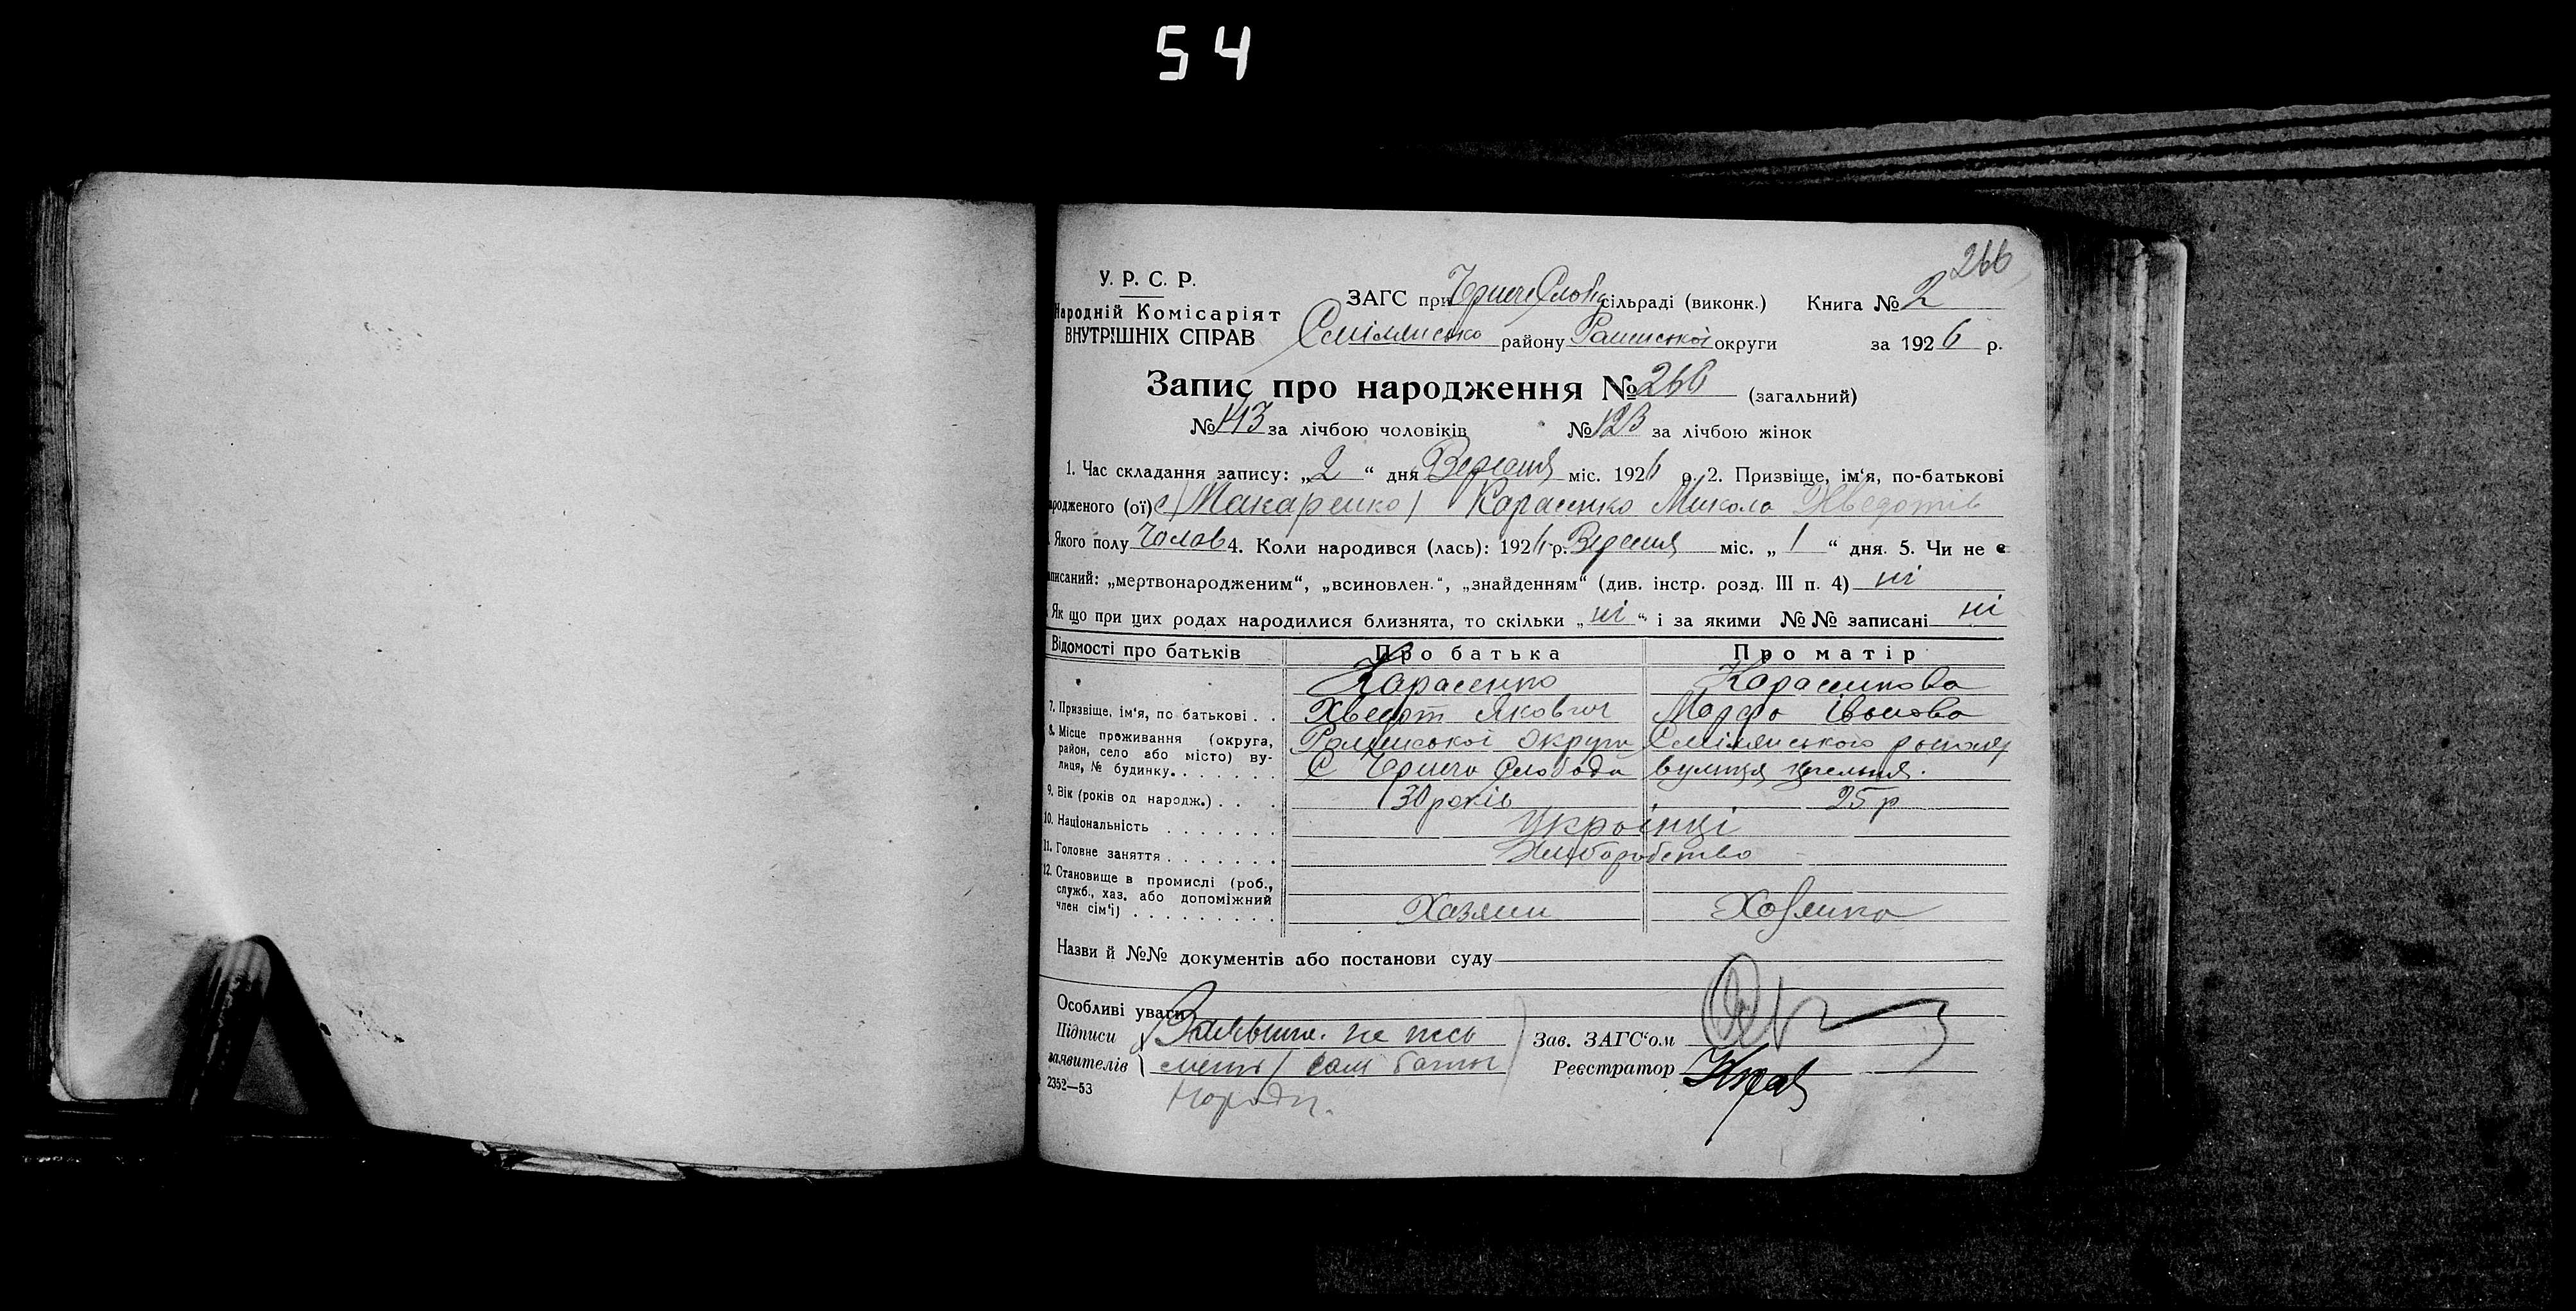 54
266
У. Р. С. Р.
Народній Комісаріят
ВНУТРІШНІХ СПРАВ
ЗАГС при Чернеслобід сільраді (виконк.) Книга № 2
Смілянсько району Роменської округи за 1926 р.
Запис про народження № 266 (загальний)
№ 143 за лічбою чоловіків № 123 за лічбою жінок
1. Час складання запису: „2“ дня Вересня міс. 1926 р. 2. Призвіще, ім'я, по-батькові
народженого (ої) (Макаренко) Карасенко Микола Хведотів
Якого полу Чолов 4. Коли народився (лась): 1926 р. Вересня міс. „1“ дня. 5. Чи не є
записаний: „мертвонародженим“, „всиновлен.“, „знайденням“ (див. інстр. розд. III п. 4) ні
Як що при цих родах народилися близнята, то скільки „ні“ і за якими №№ записані ні
Відомості про батьків Про батька Про матір
Карасенко Карасенкова
7. Призвіще, ім'я, по батькові . . Хведот Якович Марфа Іванова
8. Місце проживання (округа, район, село або місто) вулиця, № будинку. Роменської Округи Смілянського
С Чернеча Слобода вулиця
9. Вік (років од народж.) . . . 30 років 25 р
10. Національність . . . . . . . Українці
11. Головне заняття . . . . . . . Хліборобство
12. Становище в промислі (роб.,
служб., хаз. або допоміжний
член сім'ї) . . . . . . . . . Хазяин Хазяйка
Назви й №№ документів або постанови суду
Особливі уваги
Підписи не пись
заявителів менн) сам батько
Зав. ЗАГС“ом
Реєстратор
2352—53